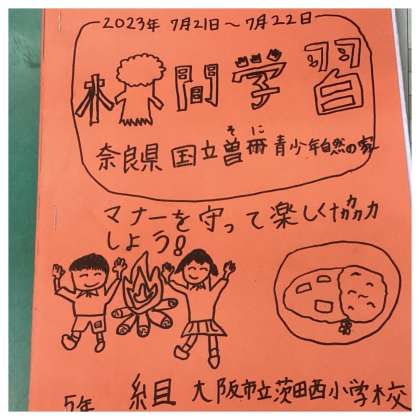 2023年 7月21日～7月22日
林間学習
奈良県 国立曽爾青少年自然の家
そに
マナーを守って楽しく協力
しよう!
5年 組 大阪市立茨田西小学校